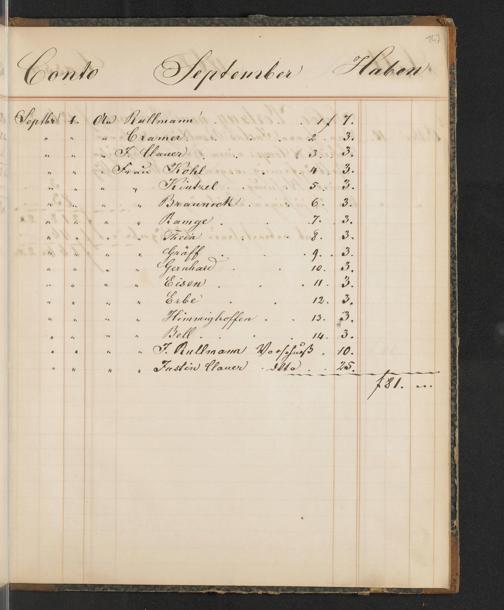 Conto September Haben
Septbr 1. An Rullmann 1 f 7.
" " " Cramer . . 2. . 3.
" " " J. Clauer . . 3. . 3.
" " " Frau Kohl . . 4. . 3.
" " " " Küntzel . . 5. . 3.
" " " " Brauneck . . 6. . 3.
" " " " Ramge . . 7. . 3.
" " " " Thein . . 8. . 3.
" " " " Gräff . . 9. . 3.
" " " " Gernhard . . 10. . 3.
" " " " Eisen . . 11. . 3.
" " " " Erbe . . 12. . 3.
" " " " Himmighoffen . . 13. . 3.
" " " " Bell . . . 14. . 3.
" " " " J. Rullmann Vorschuß . 10.
" " " " Justin Clauer . dtto . . 25.
f 81. ...